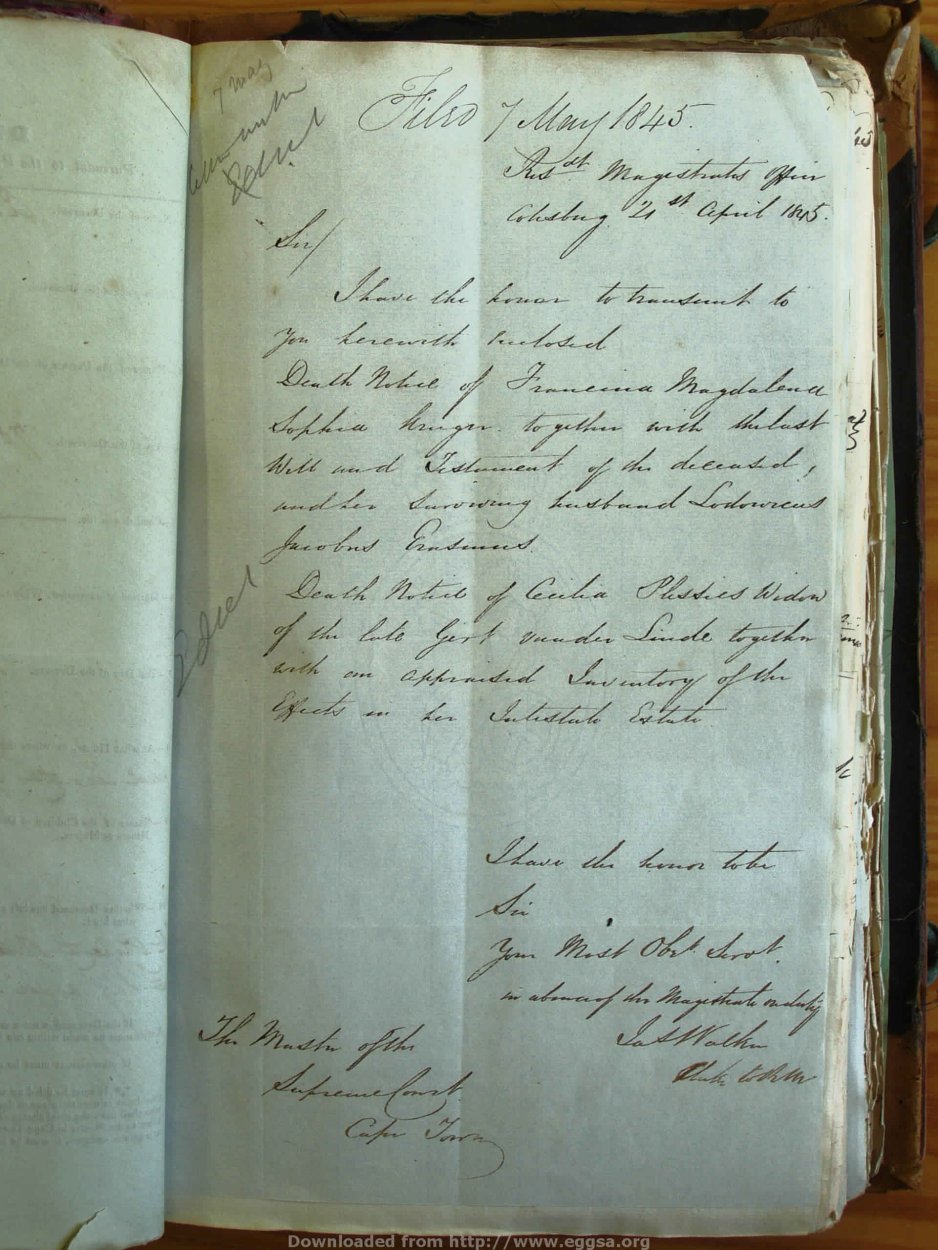 7 May
Filed 7 May 1845.
Resdt Magistrates Office
Colesberg 21st April 1845.
Sir/
I have the honor to transmit to
you herewith enclosed
Death Notice of Francina Magdalena
Sophia Kruger together with the last
Will and Testament of the deceased,
and her surviving husband Lodowicus
Jacobus Erasmus.
Death Notice of Cecilia Plessies Widow
of the late Gert vander Linde together
with an appraised Inventory of the
Effects in her Intestate Estate
I have the honor to be
Sir
Your Most Obet Servt.
in absence of the Magistrate on duty
Jas Walker
Clerk to RM
The Master of the
Supreme Court
Cape Town
Downloaded from http://www.eggsa.org